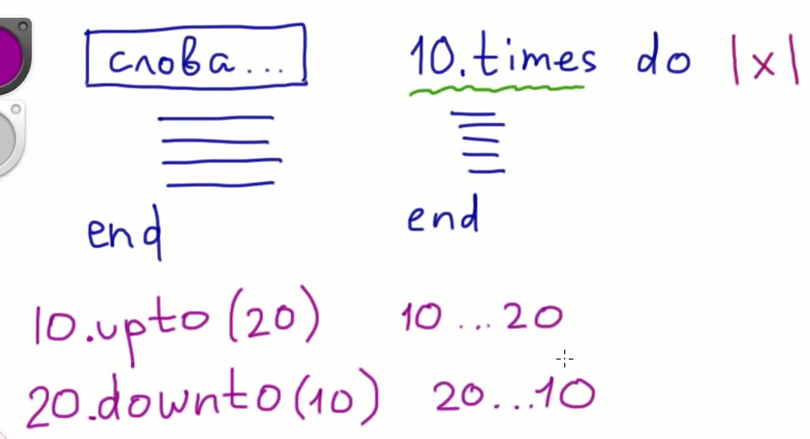 слова... 10.times do |x|
end end
10.upto(20) 10...20
20.downto(10) 20...10